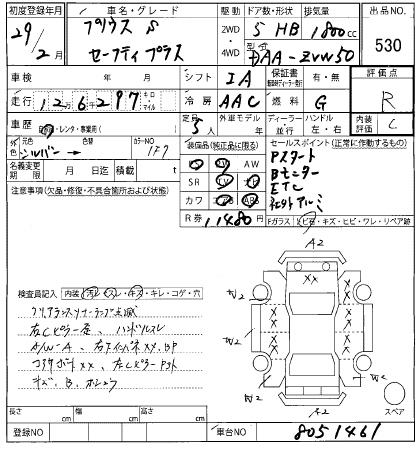 初度登録年月 車名・グレード 駆動 ドア数・形状 排気量 出品No.
29/2月 プリウス S 2WD 5 HB 1800cc 530
セーフティプラス 4WD 型式 DAA-ZVW50
車検 年 月 シフト IA 保証書 有・無 評価点
走行 126297 キロ マイル 冷房 AAC 燃料 G R
車歴 自家用・レンタ・事業用( ) 定員 5人 外車モデル 年 ディーラー 並行 ハンドル 左・右 内装評価 C
外色 元色 シルバー 色替 カラーNO 1F7 装備品(純正品に限る) セールスポイント(正常に作動するもの)
名義変更期限 月 日迄 積載 t AW Pスタート
SR TV ナビ Bモニター
注意事項(欠品・修復・不具合箇所および状態) カワ エアB ABS ETC
R券 11480円 社外アルミ
Fガラス 飛石・キズ・ヒビ・ワレ・リペア跡
A2
XX
検査員記入 内装 汚レ・スレ・キズ・キレ・コゲ・穴
左Cピラー歪、ハンドルスレ
A/W-A、右FインパネXX、BP
コアサポートXX、左Cピラー
キズ、B、
W2
A2
スペア
長さ cm 幅 cm 高さ cm
登録NO 車台NO 8051461